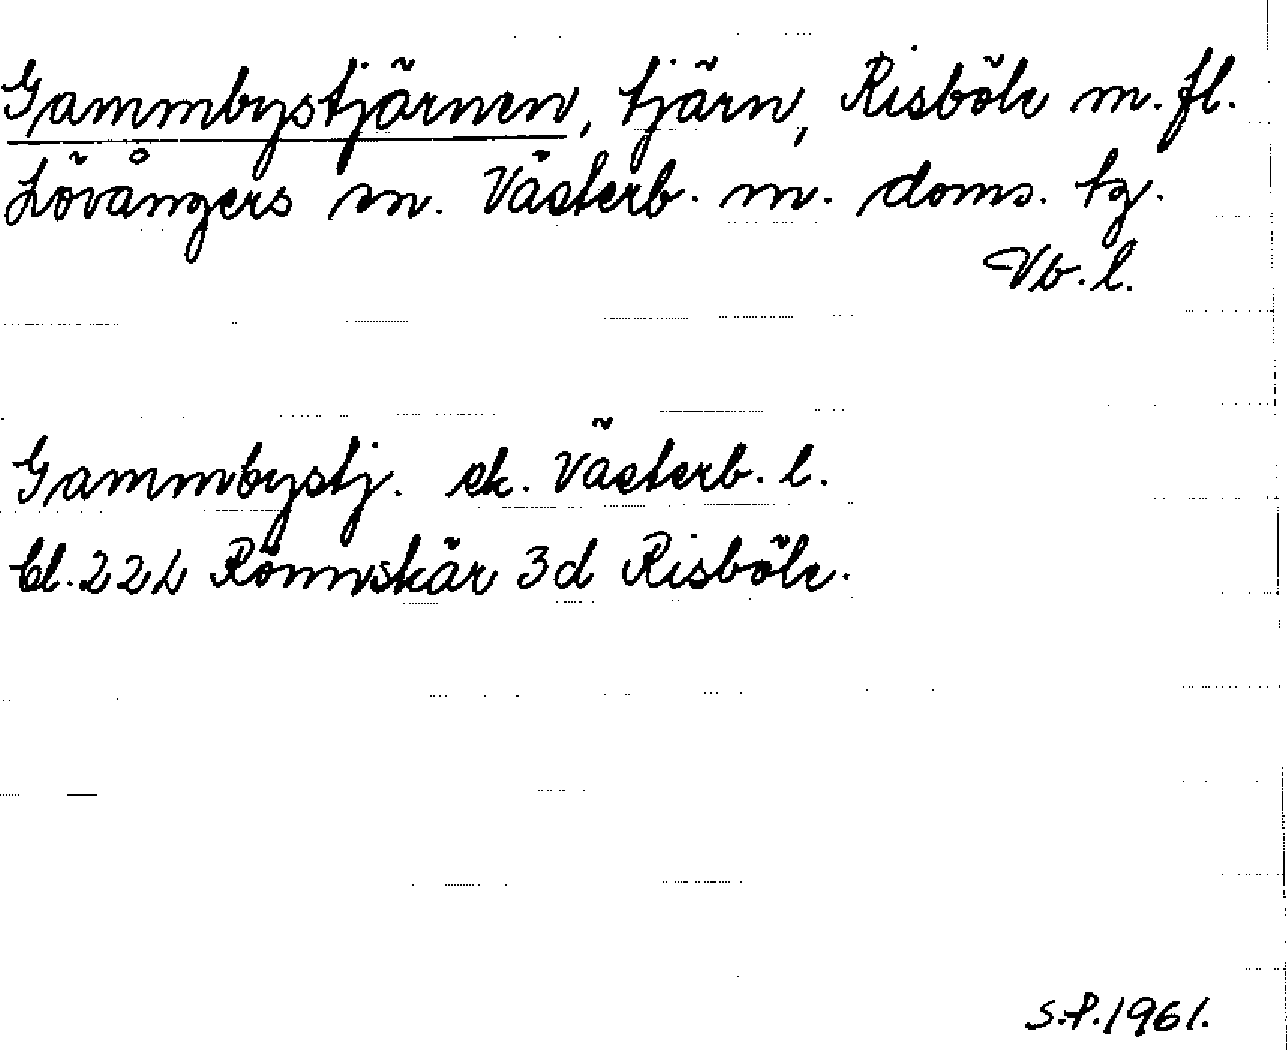 Gammbystjärnen, tjärn, Risböle m. fl.
Lövångers sn. Västerb. m. doms. tg.
Vb. l.
Gammbystj. ek. Västerb. l.
bl. 22L Rönnskär 3d Risböle.
S.P. 1961.